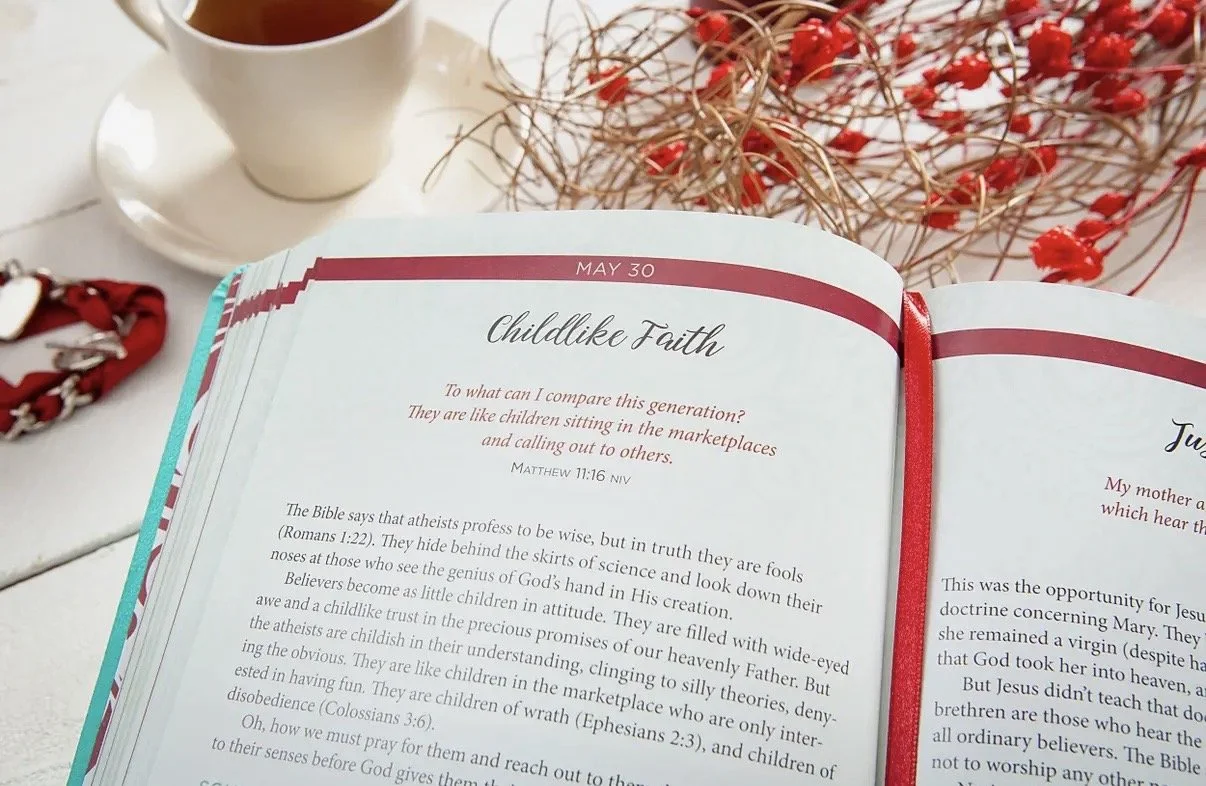 MAY 30
Childlike Faith
To what can I compare this generation?
They are like children sitting in the marketplaces
and calling out to others.
Matthew 11:16 NIV
The Bible says that atheists profess to be wise, but in truth they are fools
(Romans 1:22). They hide behind the skirts of science and look down their
noses at those who see the genius of God's hand in His creation.
Believers become as little children in attitude. They are filled with wide-eyed
awe and a childlike trust in the precious promises of our heavenly Father. But
the atheists are childish in their understanding, clinging to silly theories, deny-
ing the obvious. They are like children in the marketplace who are only inter-
ested in having fun. They are children of wrath (Ephesians 2:3), and children of
disobedience (Colossians 3:6).
Oh, how we must pray for them and reach out to
to their senses before God gives them
My mother
which hear
This was the opportunity for
doctrine concerning Mary. They
she remained a virgin (despite
that God took her into heaven,
But Jesus didn't teach that
brethren are those who hear the
all ordinary believers. The Bible
not to worship any other